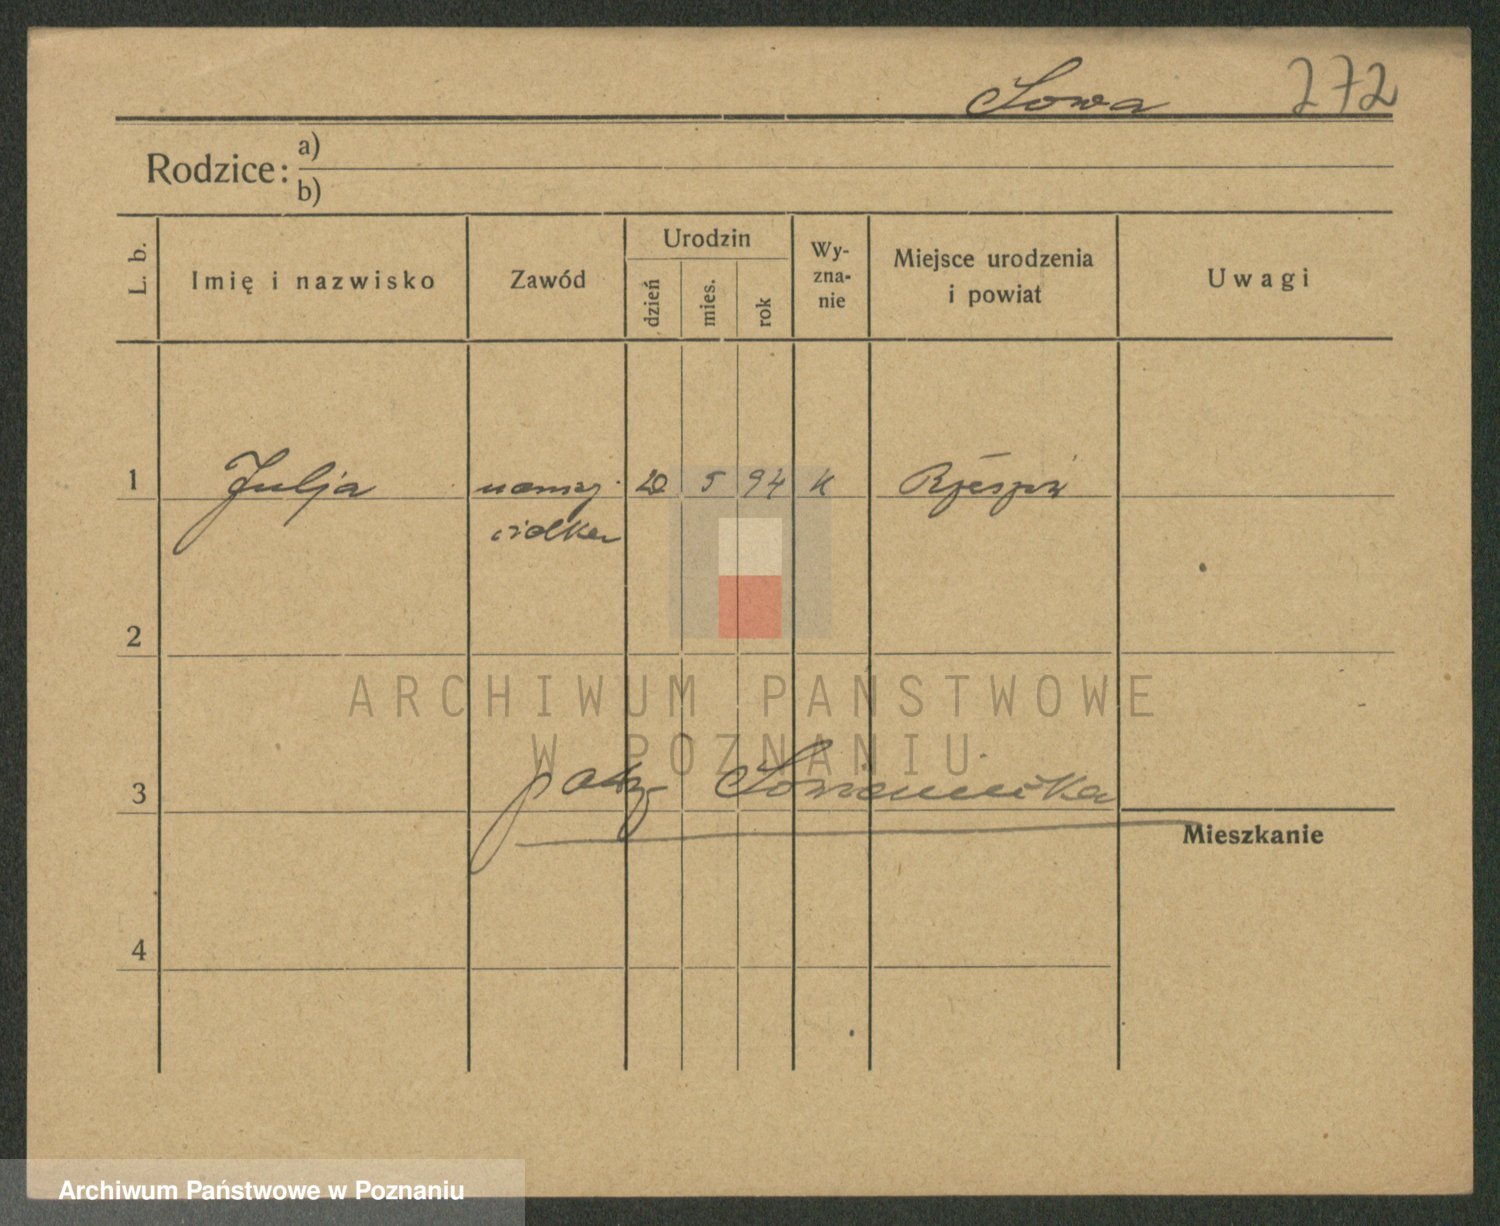 Sowa 272
Rodzice: a)
b)
L. b.
Imię i nazwisko
Zawód
Urodzin
dzień
mies.
rok
Wy-
zna-
nie
Miejsce urodzenia
i powiat
Uwagi
1 Julja 5 94 k
2
ARCHIWUM PAŃSTWOWE
W POZNANIU
3 patrz
Mieszkanie
4
Archiwum Państwowe w Poznaniu